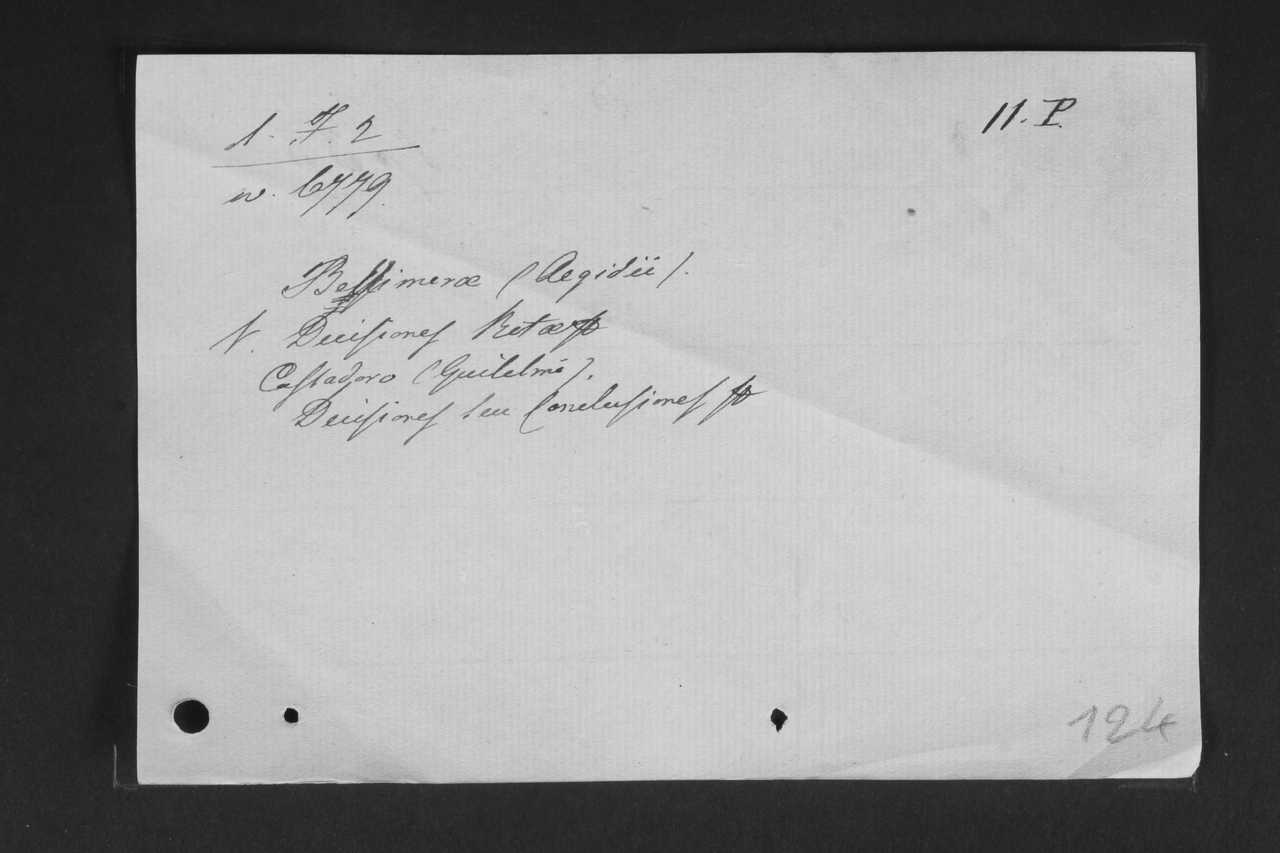 1. F. 2
11. P.
w. 6779.
Bellimeræ (Aegidii).
V. Decisiones Rotæ
Cassadoro (Guilelmi).
Decisiones seu Conclusiones
124